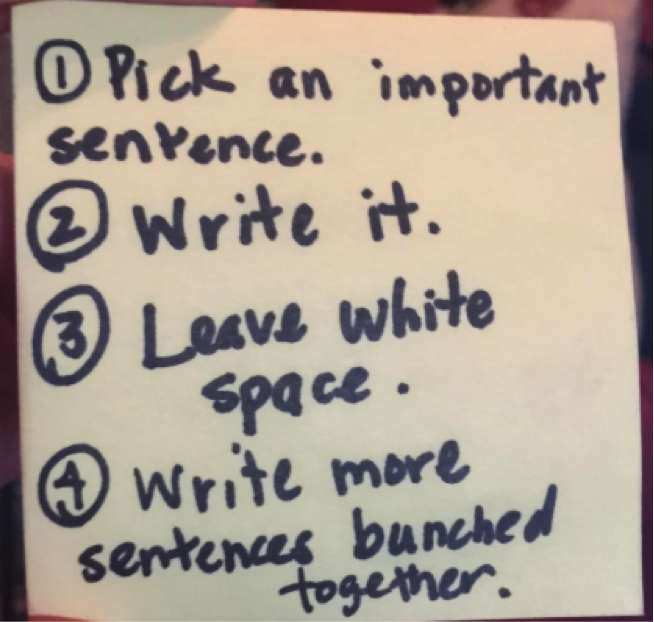 ① Pick an important
sentence.
② Write it.
③ Leave white
space.
④ Write more
sentences bunched
together.